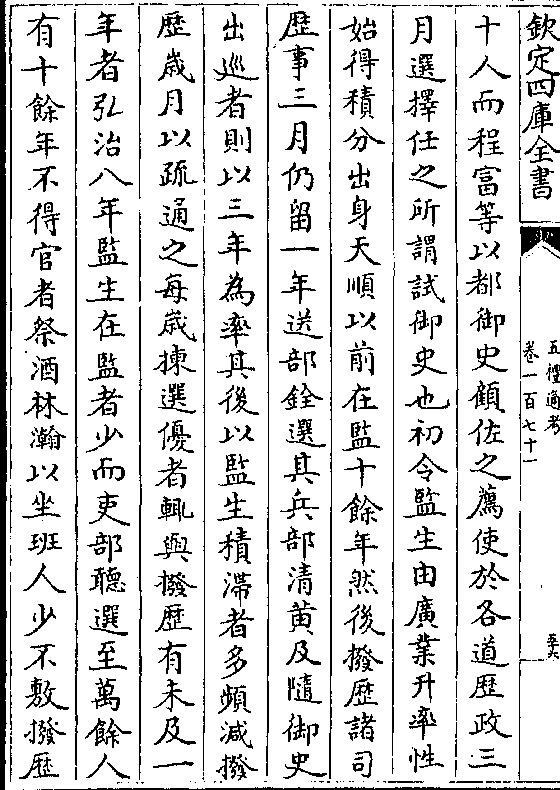 欽定四庫全書
五禮通考
卷一百七十一
五十六
十人而程富等以都御史顧佐之薦使於各道歴政三
月選擇任之所謂試御史也初令監生由廣業升率性
始得積分出身天順以前在監十餘年然後撥歴諸司
歴事三月仍留一年送部銓選其兵部清黄及隨御史
出巡者則以三年為率其後以監生積滯者多頻減撥
歴嵗月以疏通之每嵗揀選優者輒與撥歴有未及一
年者弘治八年監生在監者少而吏部聽選至萬餘人
有十餘年不得官者祭酒林瀚以坐班人少不敷撥歴